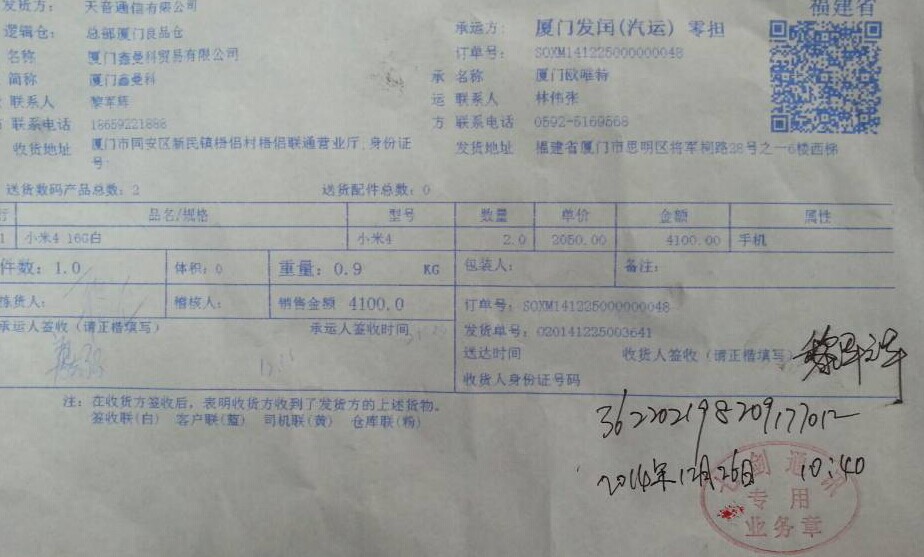 发货方： 天音通信有限公司 福建省
逻辑仓： 总部厦门良品仓 承运方： 厦门发闰(汽运) 零担
名称 厦门鑫曼科贸易有限公司 订单号： SOXM141225000000048
简称 厦门鑫曼科 承 名称 厦门欧唯特
联系人 黎军辉 运 联系人 林伟张
方 联系电话 18659221888 方 联系电话 0592-5169568
收货地址 厦门市同安区新民镇梧侣村梧侣联通营业厅,身份证号: 发货地址 福建省厦门市思明区将军祠路28号之一6楼西梯
送货数码产品总数：2 送货配件总数：0
行 品名/规格 型号 数量 单价 金额 属性
1 小米4 16G白 小米4 2.0 2050.00 4100.00 手机
件数：1.0 体积：0 重量：0.9 KG 包装人： 备注：
拣货人： 稽核人： 销售金额 4100.0 订单号：SOXM141225000000048
承运人签收（请正楷填写） 承运人签收时间 发货单号：020141225003641
送达时间 收货人签收（请正楷填写）
收货人身份证号码
注：在收货方签收后，表明收货方收到了发货方的上述货物。
签收联(白) 客户联(蓝) 司机联(黄) 仓库联(粉)
362202198209177012
2014年12月26日 10:40
剑通讯
专用
业务章